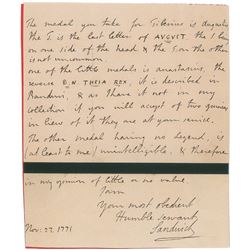 The medal you take for Tiberius is Augustus
the T is the last letter of AVGVST the
on one side of the head & the T on the other
is not uncommon.
one of the little medals is anastasius, the
reverse D.N. THEIA REX, it is described in
Banduri, & as I have it not in my
collection if you will accept of two guineas
in lieu of it they are at your service.
The other medal having no legend, is
(at least to me) unintelligible, & therefore
in my opinion of little or no value.
I am
Your most obedient
Humble servant
Sandwich
Nov. 27. 1771